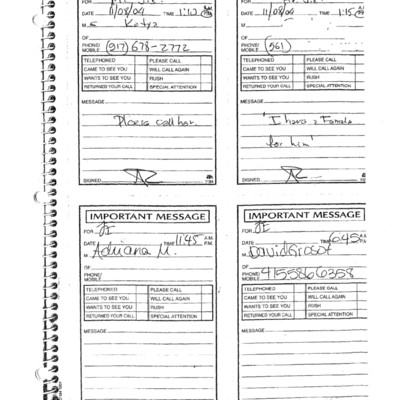 FOR
DATE 11/08/04 TIME 1:10 P.M.
M s Katya
OF
PHONE/
MOBILE (917) 678-2772
TELEPHONED PLEASE CALL
CAME TO SEE YOU WILL CALL AGAIN
WANTS TO SEE YOU RUSH
RETURNED YOUR CALL SPECIAL ATTENTION
MESSAGE
Please call her.
SIGNED
FOR
DATE 11/08/04 TIME 1:15
M
OF
PHONE/
MOBILE (561)
TELEPHONED PLEASE CALL
CAME TO SEE YOU WILL CALL AGAIN
WANTS TO SEE YOU RUSH
RETURNED YOUR CALL SPECIAL ATTENTION
MESSAGE
'I have a Female
for him'
SIGNED
IMPORTANT MESSAGE
FOR JE
DATE TIME 11:45 A.M. P.M.
M Adriana M.
OF
PHONE/
MOBILE
TELEPHONED PLEASE CALL
CAME TO SEE YOU WILL CALL AGAIN
WANTS TO SEE YOU RUSH
RETURNED YOUR CALL SPECIAL ATTENTION
MESSAGE
IMPORTANT MESSAGE
FOR JE
DATE TIME 6:45 A.M. P.M.
M David Grosof
OF
PHONE/
MOBILE 4155866358
TELEPHONED PLEASE CALL
CAME TO SEE YOU WILL CALL AGAIN
WANTS TO SEE YOU RUSH
RETURNED YOUR CALL SPECIAL ATTENTION
MESSAGE